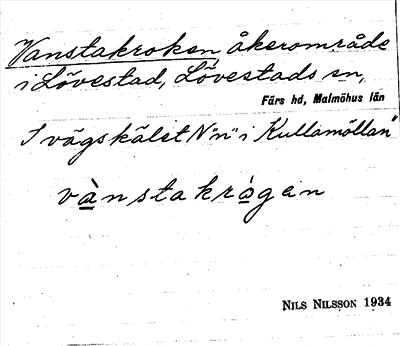 Vanstakroken, åkerområde
i Lövestad, Lövestads sn,
Färs hd, Malmöhus län
I vägskälet N"n" i Kullamöllan"
vànstakrògen
NILS NILSSON 1934